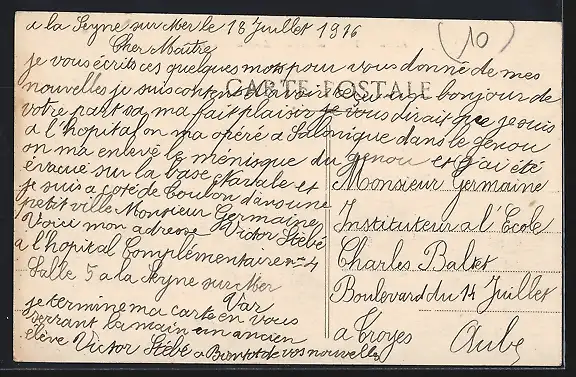 a la Seyne sur Mer le 18 Juillet 1916
Cher Maître
(10)
je vous écrits ces quelques mots pour vous donné de mes
CARTE POSTALE
nouvelles je suis content avoir reçu un bonjour de
votre part sa ma fait plaisir je vous dirait que je suis
a l'hopital on ma opéré a Salonique dans le genou
on ma enlevé le ménisque du genou et j'ai été
évacué sur la base Navale et
je suis a coté de Toulon dans une
petit ville Monsieur Germaine
Voici mon adresse Victor Stébé
a l'hopital Complémentaire n° 4
Salle 5 a la Seyne sur Mer
Var
je termine ma carte en vous
serrant la main un ancien
élève Victor Stébé a Bientot de vos nouvelles
Monsieur Germaine
Instituteur a l'École
Charles Baltet
Boulevard du 14 Juillet
a Troyes
Aube